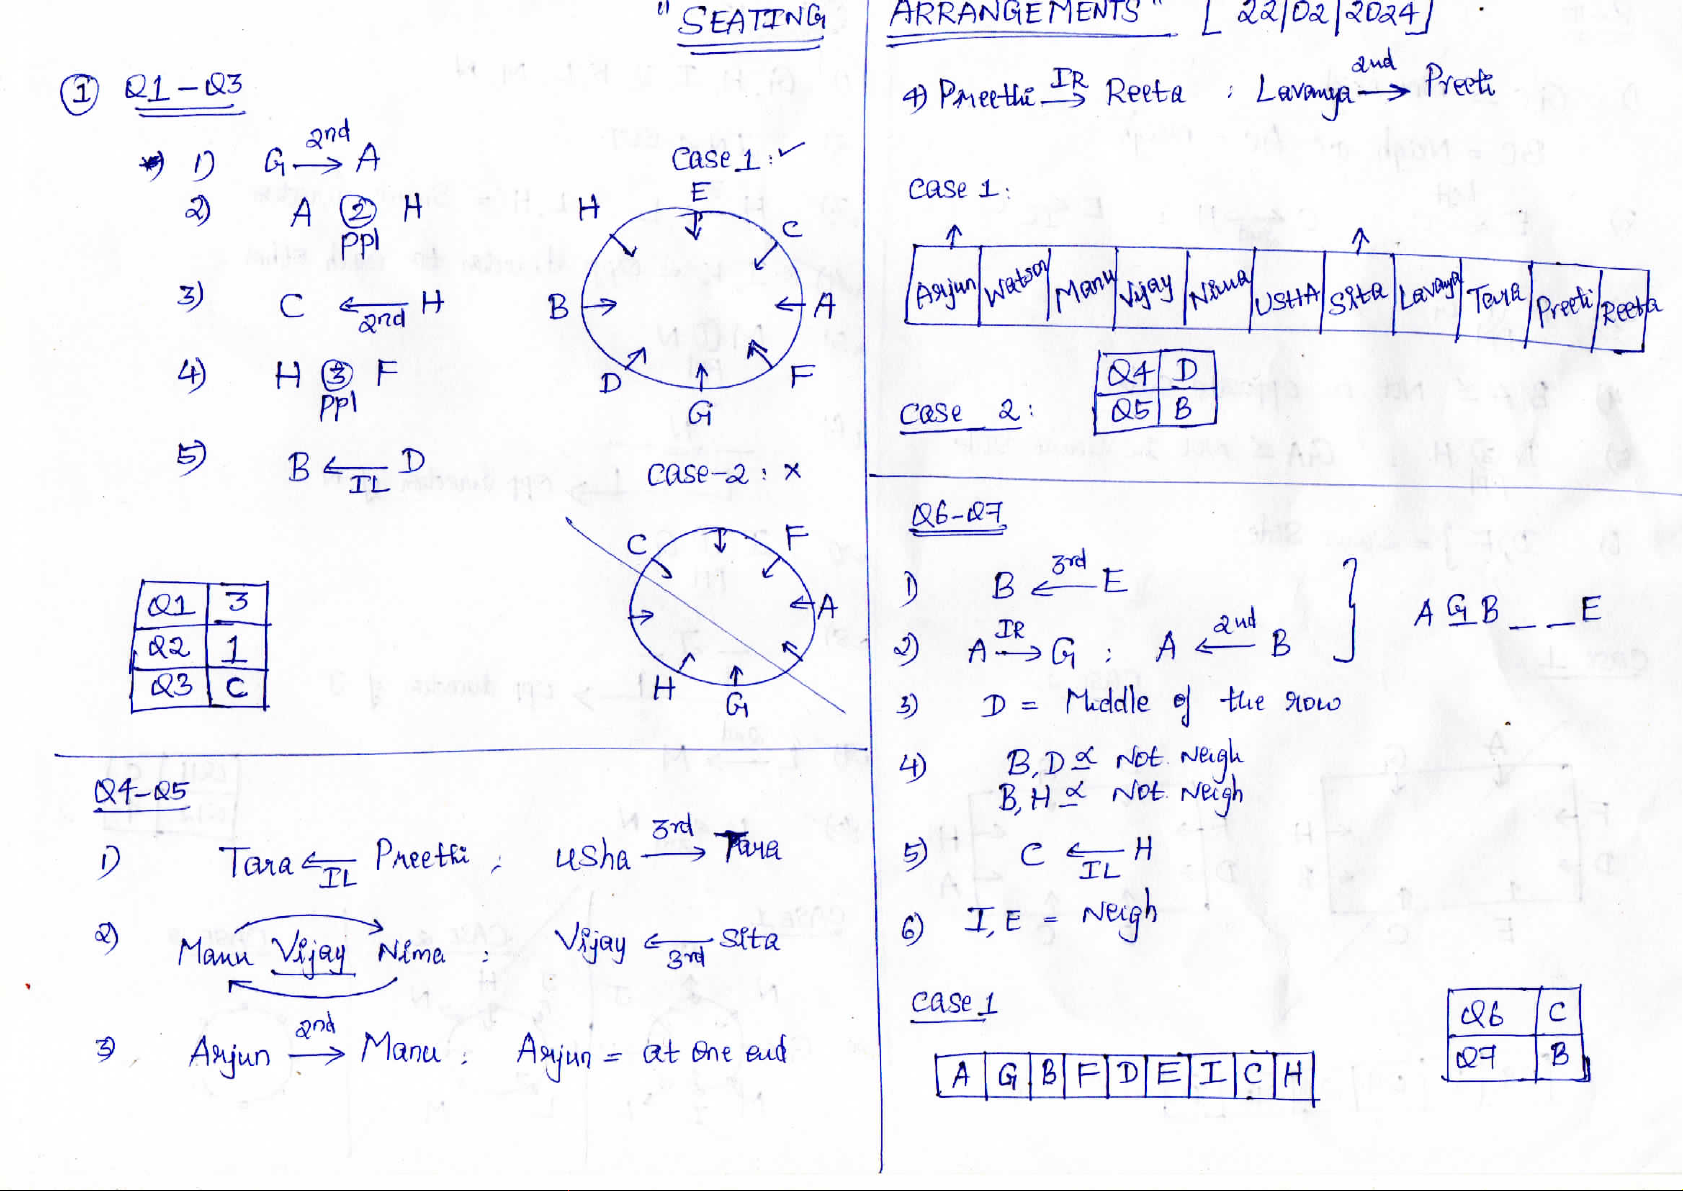 "SEATING ARRANGEMENTS" [22/02/2024]
① Q1-Q3
1) G 2nd→ A
2) A ② H
PPl
3) C ←2nd H
4) H ③ F
PPl
5) B ←IL D
Case 1: ✓
E
H
C
B
A
D
F
G
Case-2: ×
C
F
A
H
G
Q1 3
Q2 1
Q3 C
Q4-Q5
1) Tara ←IL Preethi ; Usha 3rd→ Tara
2) Manu Vijay Nima : Vijay ←3rd Sita
3) Arjun 2nd→ Manu : Arjun = at one end
4) Preethi IR→ Reeta : Lavanya 2nd→ Preeti
Case 1:
Arjun Watson Manu Vijay Nima USHA Sita Lavanya Tara Preeti Reeta
Q4 D
Q5 B
Case 2:
Q6-Q7
1) B ←3rd E
2) A IR→ G : A ←2nd B
A G B _ _ E
3) D = Middle of the row
4) B, D ≠ Not Neigh
B, H ≠ Not Neigh
5) C ←IL H
6) I, E = Neigh
Case 1
A G B F D E I C H
Q6 C
Q7 B